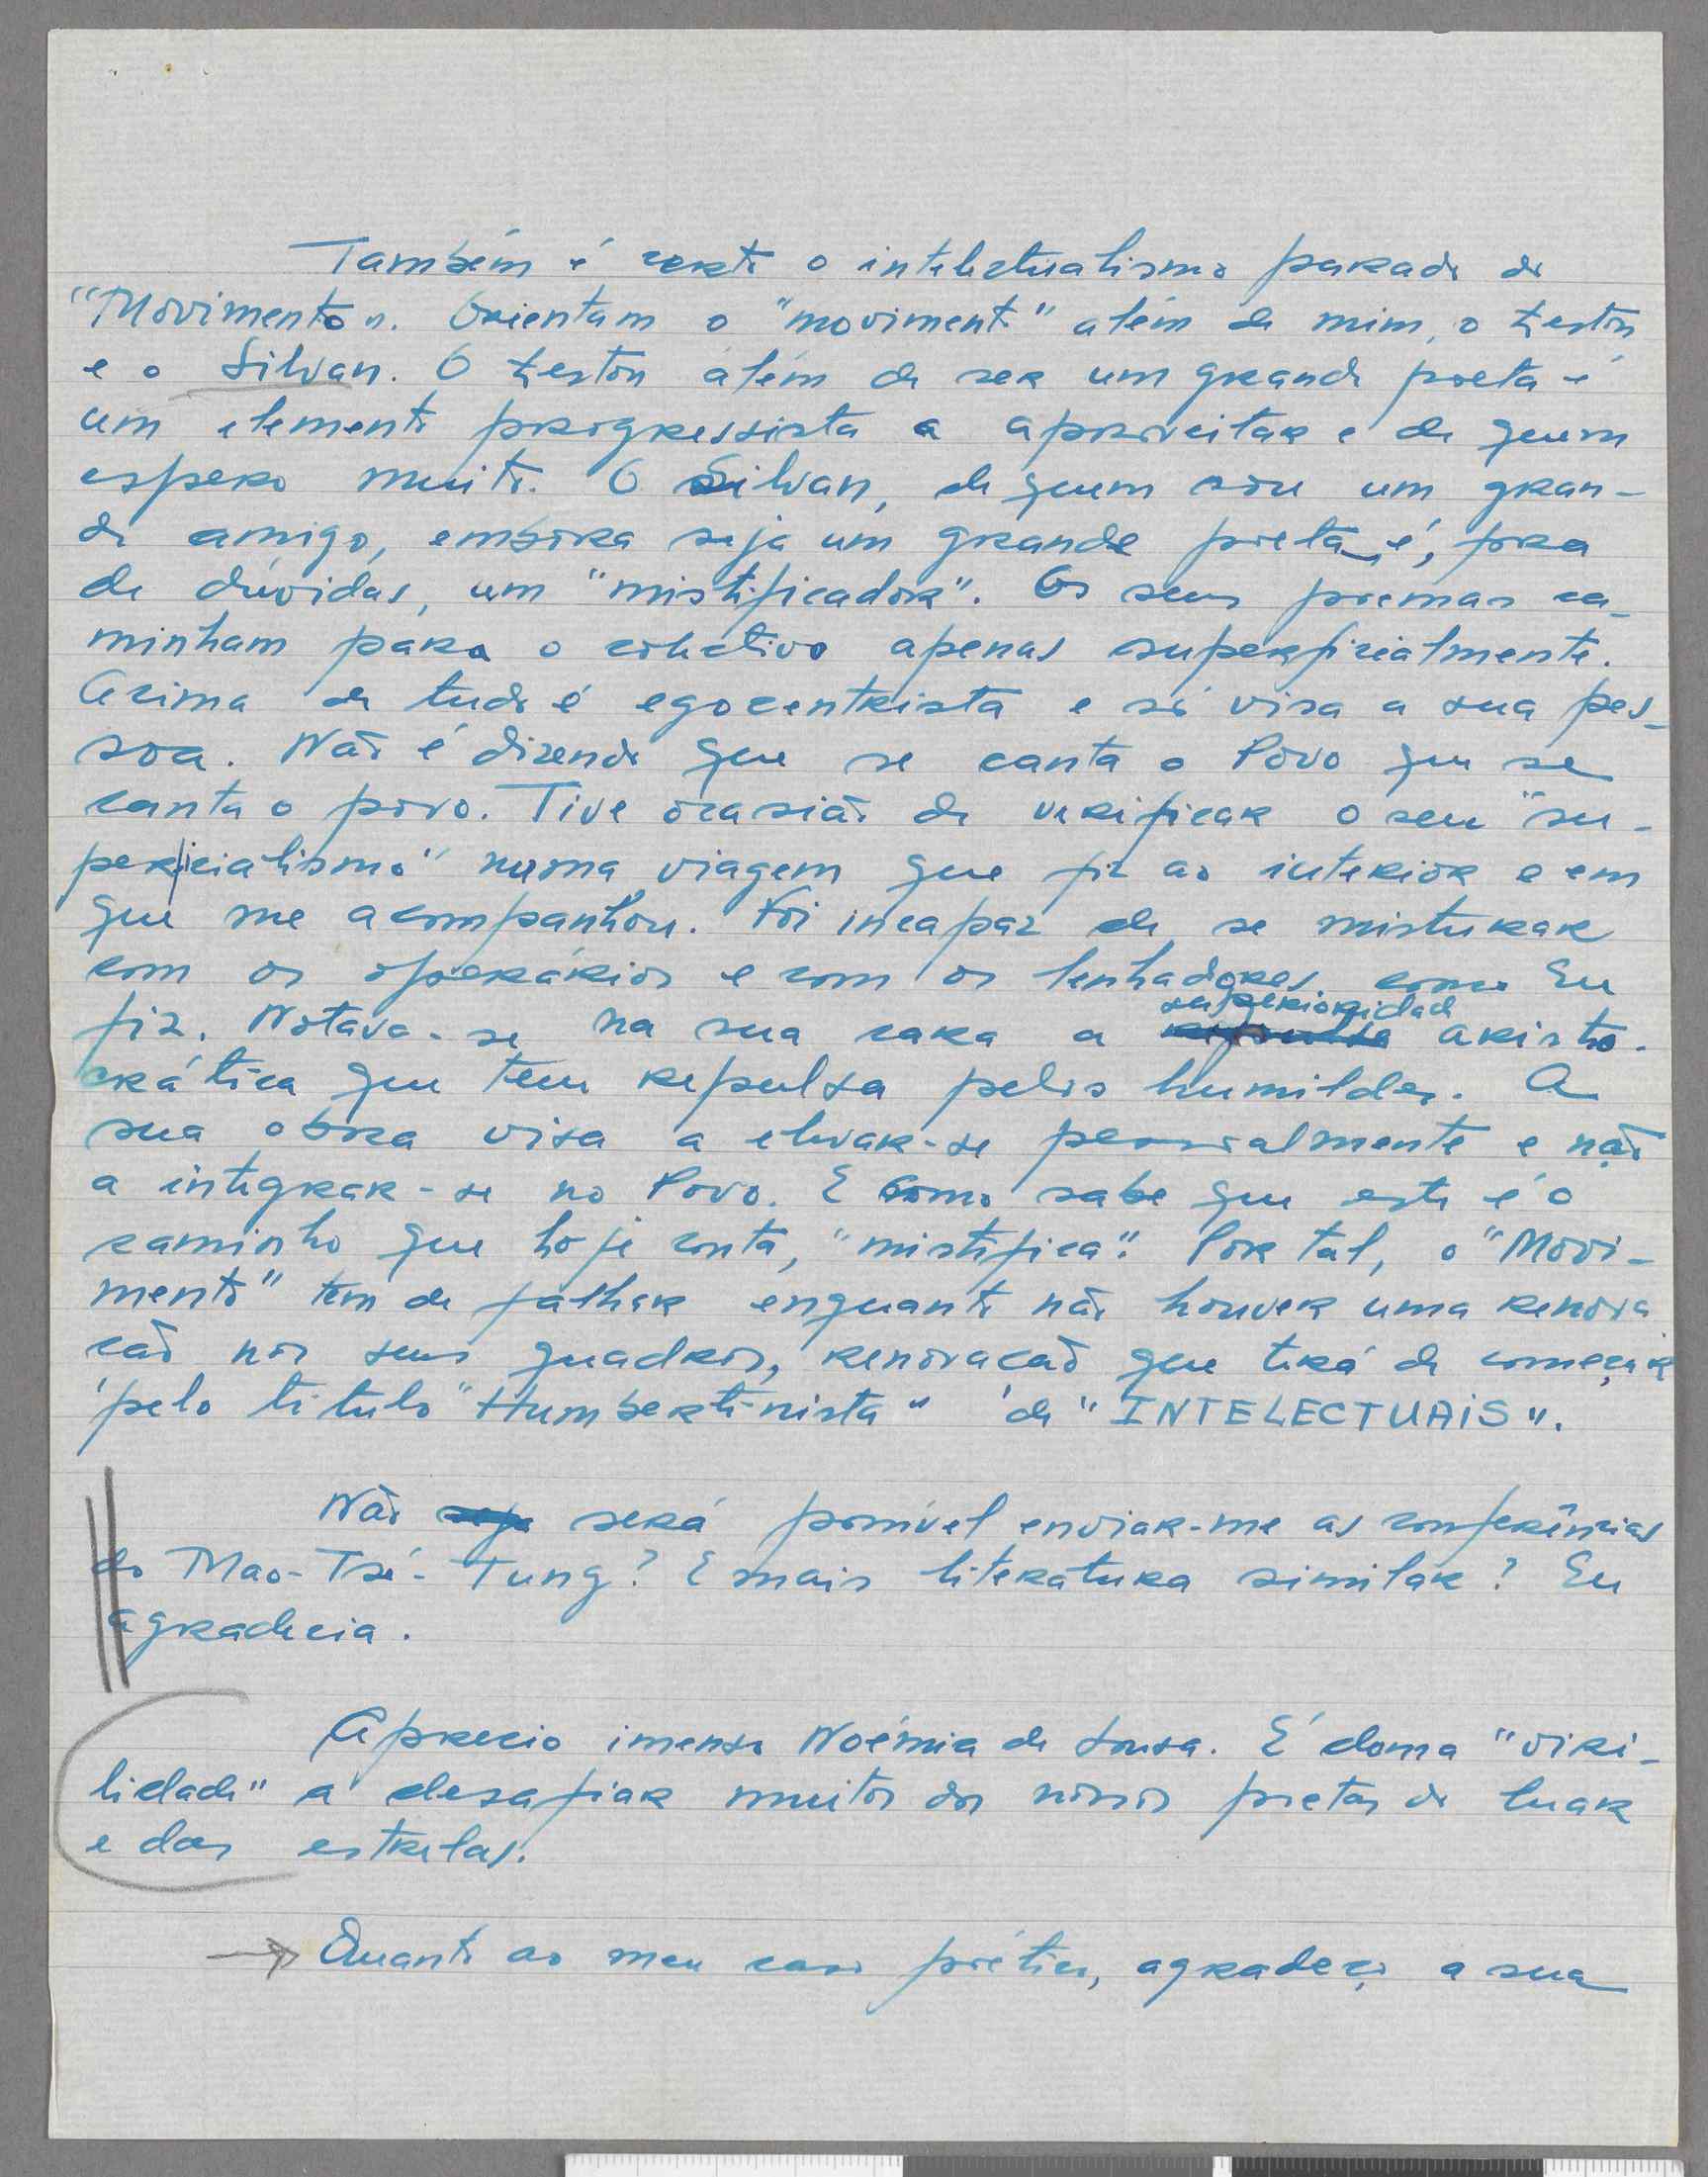 Também é certo o intelectualismo parado do
"Movimento". Orientam o "movimento" além de mim, o Leston
e o Silvan. O Leston além de ser um grande poeta é
um elemento progressista a aproveitar e de quem
espero muito. O Silvan, de quem sou um gran-
de amigo, embora seja um grande poeta é, fora
de dúvidas, um "mistificador". Os seus poemas ca-
minham para o colectivo apenas superficialmente.
Acima de tudo é egocentrista e só visa a sua pes-
soa. Não é dizendo que se canta o Povo que se
canta o povo. Tive ocasião de verificar o seu "su-
perficialismo" numa viagem que fiz ao interior e em
que me acompanhou. Foi incapaz de se misturar
com os operários e com os lenhadores, como Eu
fiz. Notava-se na sua cara a superioridade aristo-
crática que tem repulsa pelos humildes. A
sua obra visa a elevar-se pessoalmente e não
a integrar-se no Povo. E como sabe que este é o
caminho que hoje conta, "mistifica". Por tal, o "Movi-
mento" tem de falhar enquanto não houver uma renova
ção nos seus quadros, renovação que terá de começar
pelo titulo "Humbertinista" de "INTELECTUAIS".
Não será possível enviar-me as conferências
do Mao-Tsé-Tung? E mais literatura similar? Eu
agradecia.
Aprecio imenso Noémia de Sousa. É duma "viri-
lidade" a desafiar muitos dos nossos poetas do luar
e das estrelas.
Quanto ao meu caso poético, agradeço a sua